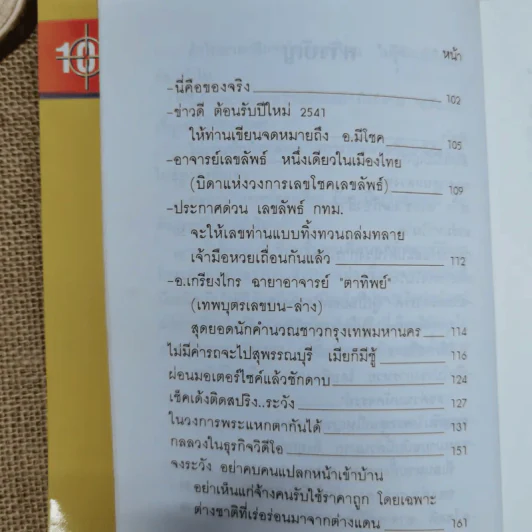 10
หน้า
-นี่คือของจริง 102
-ข่าวดี ต้อนรับปีใหม่ 2541
ให้ท่านเขียนจดหมายถึง อ.มีโชค 105
-อาจารย์เลขลัพธ์ หนึ่งเดียวในเมืองไทย
(บิดาแห่งวงการเลขโชคเลขลัพธ์) 109
-ประกาศด่วน เลขลัพธ์ กทม.
จะให้เลขท่านแบบทิ้งทวนถล่มทลาย
เจ้ามือหวยเถื่อนกันแล้ว 112
-อ.เกรียงไกร ฉายาอาจารย์ "ตาทิพย์"
(เทพบุตรเลขบน-ล่าง)
สุดยอดนักคำนวณชาวกรุงเทพมหานคร 114
ไม่มีค่ารถจะไปสุพรรณบุรี เมียก็มีชู้ 116
ผ่อนมอเตอร์ไซค์แล้วชักดาบ 124
เช็คเด้งติดสปริง..ระวัง 127
ในวงการพระแหกตากันได้ 131
กลลวงในธุรกิจวิดีโอ 151
จงระวัง อย่าคบคนแปลกหน้าเข้าบ้าน
อย่าเห็นแก่จ้างคนรับใช้ราคาถูก โดยเฉพาะ
ต่างชาติที่เร่อร่อนมาจากต่างแดน 161